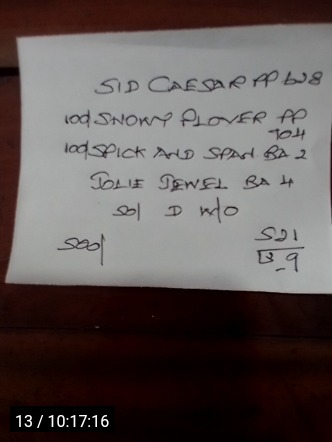 SID CAESAR PP 628
100/ SNOWY PLOVER PP
704
100/ SPICK AND SPAN BA 2
JOLIE JEWEL BA 4
50/ D W/O
500/
521
9
13 / 10:17:16